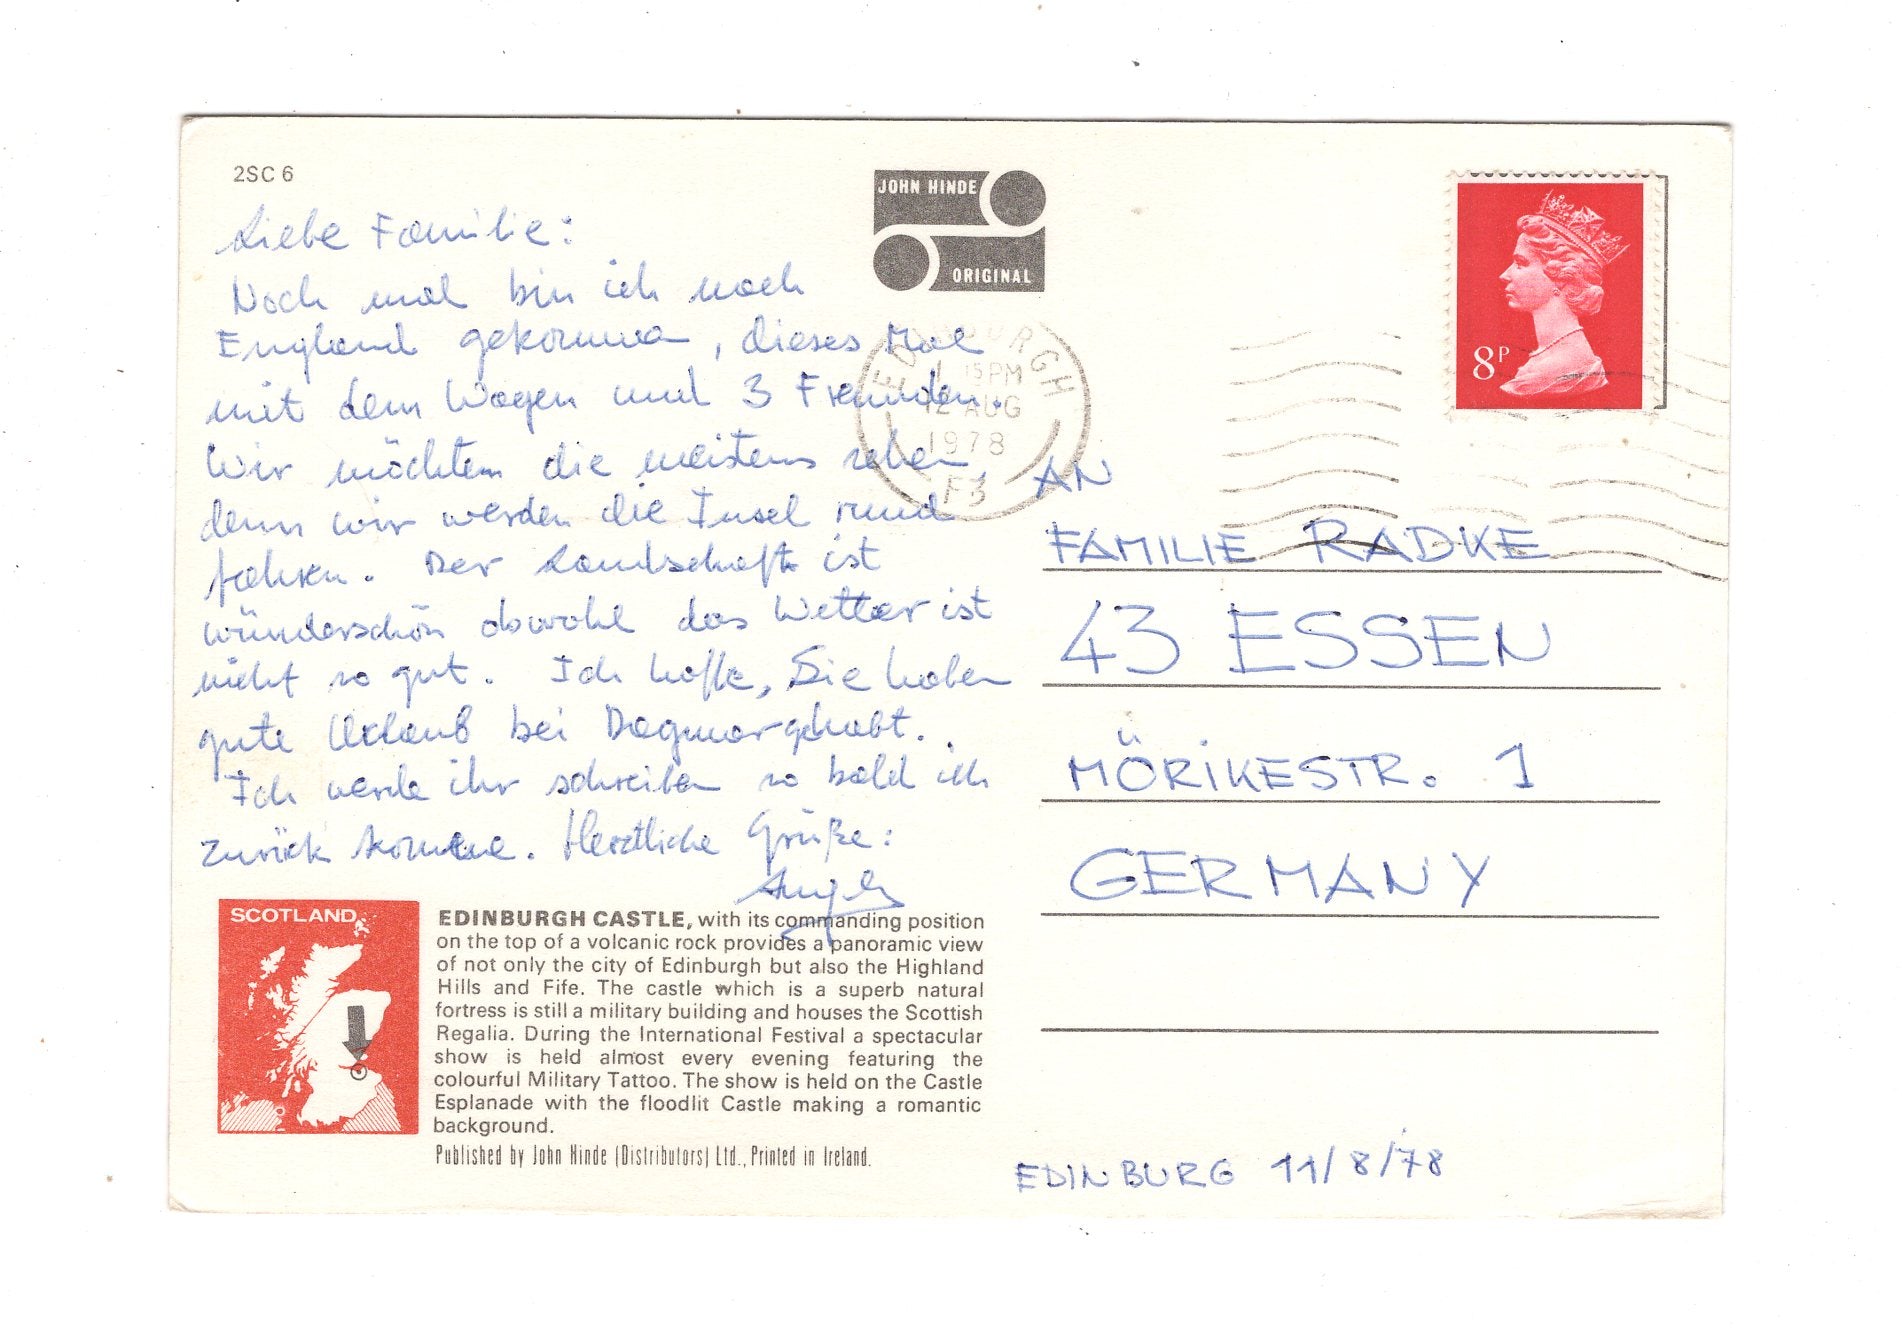 2SC 6
Liebe Familie:
Noch mal bin ich nach
England gekommen, dieses Mal
mit dem Wagen und 3 Freunden.
Wir möchten die meistens sehen,
denn wir werden die Insel rund
fahren. Der Landschaft ist
wünderschön obwohl das Wetter ist
nicht so gut. Ich hoffe, Sie haben
gute Urlaub bei Dagmar gehabt.
Ich werde ihr schreiben so bald ich
zurück komme. Herzliche Grüße:
JOHN HINDE
ORIGINAL
EDINBURGH
15 PM
12 AUG
1978
F3
8P
AN
FAMILIE RADKE
43 ESSEN
MÖRIKESTR. 1
GERMANY
SCOTLAND
EDINBURGH CASTLE, with its commanding position
on the top of a volcanic rock provides a panoramic view
of not only the city of Edinburgh but also the Highland
Hills and Fife. The castle which is a superb natural
fortress is still a military building and houses the Scottish
Regalia. During the International Festival a spectacular
show is held almost every evening featuring the
colourful Military Tattoo. The show is held on the Castle
Esplanade with the floodlit Castle making a romantic
background.
Published by John Hinde (Distributors) Ltd., Printed in Ireland.
EDINBURG 11/8/78